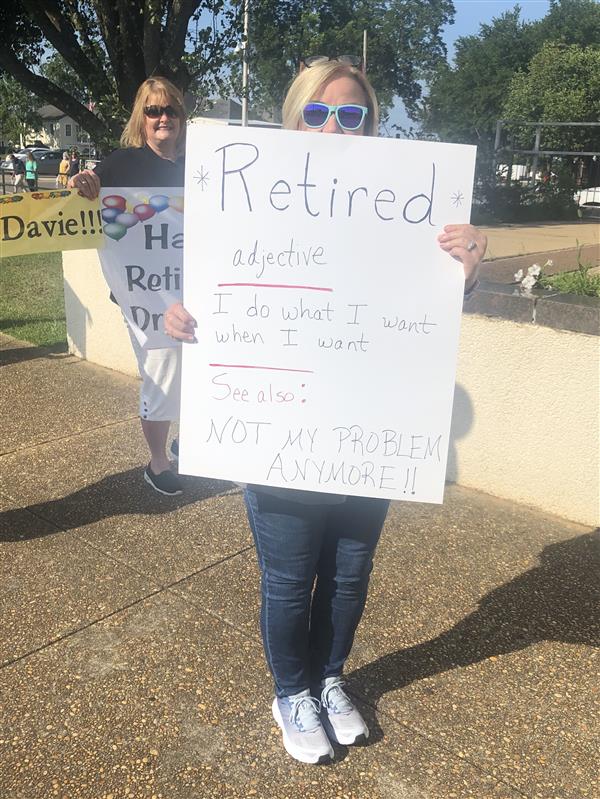 Davie!!!
Reti
* Retired *
adjective
I do what I want
when I want
See also:
NOT MY PROBLEM
ANYMORE!!